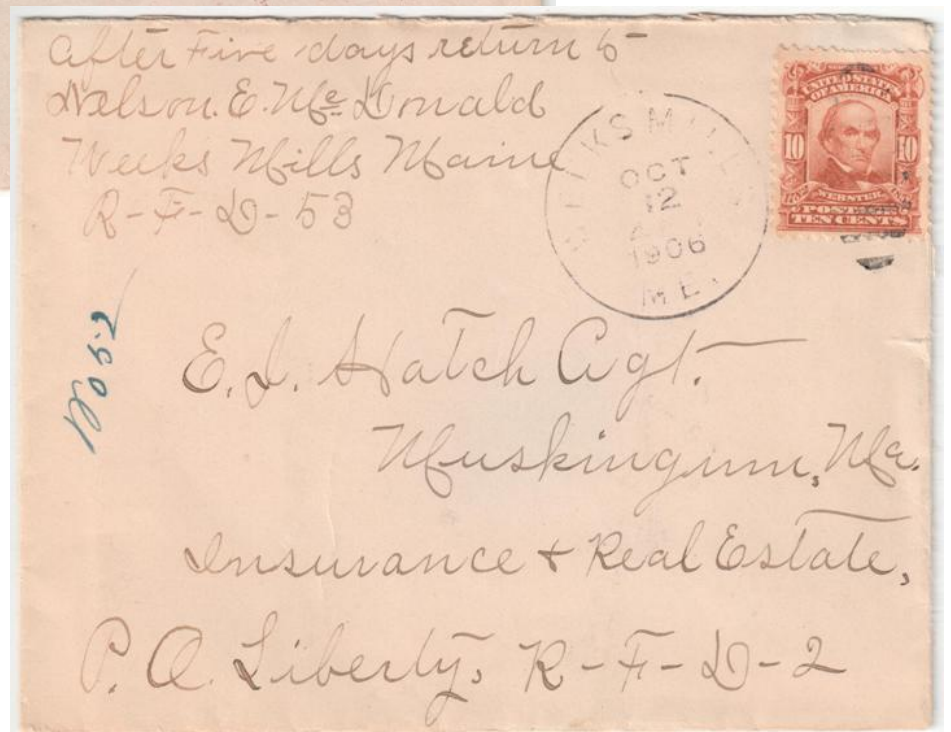 After Five days return to
Nelson. E. Mc Donald
Weeks Mills Maine
R-F-D-53
WEEKS MILLS
OCT
12
1906
ME.
UNITED STATES
OF AMERICA
10 10
WEBSTER
POSTAGE
TEN CENTS
E. I. Hatch Agt.
Muskingum, Me.
Insurance + Real Estate,
P. O. Liberty, R-F-D-2